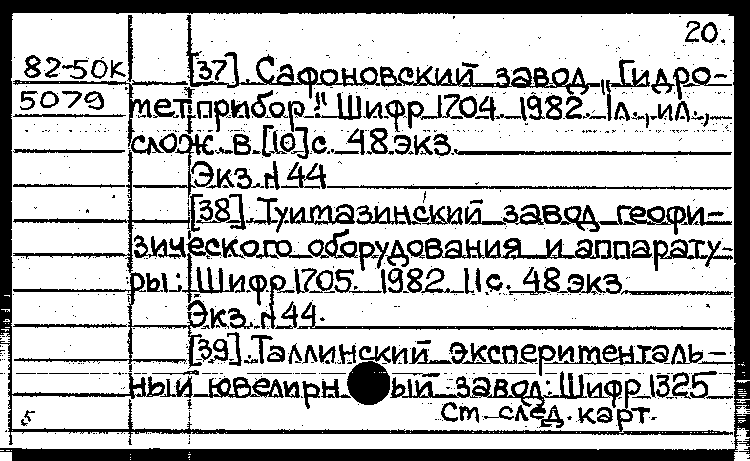 20.
82-50К [37]. Сафоновский завод „Гидро-
5079 метприбор". Шифр 1704. 1982. 1л., ил.,
слож. в [10]с. 48 экз.
Экз. N 44
[38]. Туймазинский завод геофи-
зического оборудования и аппарату-
ры: Шифр 1705. 1982. 11с. 48 экз.
Экз. N 44.
[39]. Таллинский эксперименталь-
ный ювелирн ый завод: Шифр 1325
5 См. след. карт.